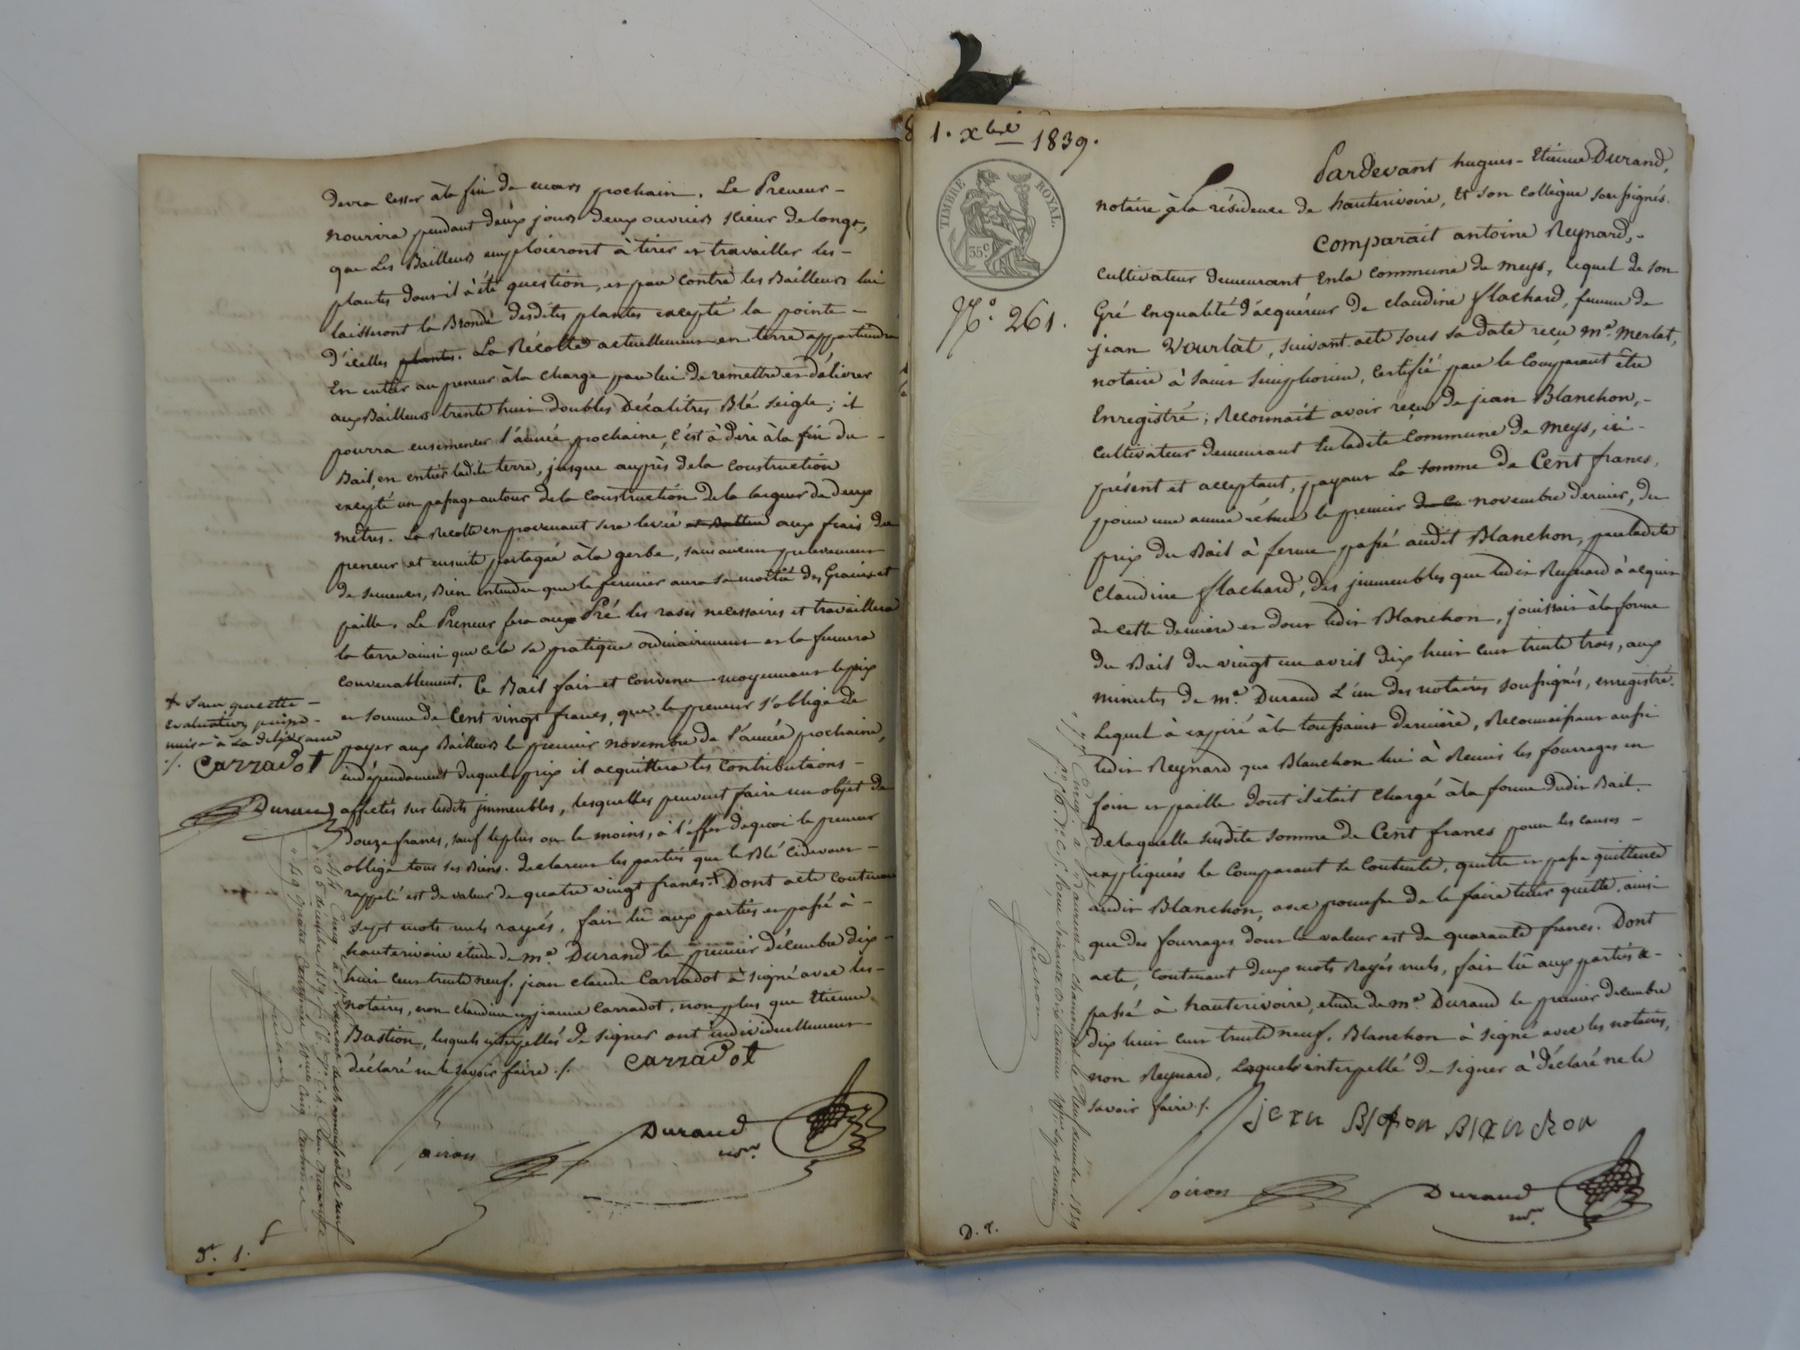 devra cesser à la fin de mars prochain. Le Preneur -
nourira pendant deux jours deux ouvriers scieur de longs,
que les Bailleurs emploieront à tirer et travailler les -
plantes dont il à été question, et par contre les Bailleurs lui
laisseront la Bronde desdites plantes excepté la pointe -
d'icelles plantes. La Récolte actuellement en terre appartiendra
En entier au preneur à la charge par lui de remettre et délivrer
aux Bailleurs trente huit doubles Décalitres Blé seigle; il
pourra ensimencer l'année prochaine, c'est à dire à la fin du -
Bail, en entier ladite terre, jusque auprès de la construction
excepté un passage autour de la construction de la largeur de deux
mètres. La Recolte en provenant sera levée et Battue aux frais du
preneur et ensuite partagée à la gerbe, sans aucun prelevement
de semences, Bien entendu que le fermier aura sa moitié des Grains et
paille. Le Preneur fera aux Pré les rases necessaires et travaillera
la terre ainsi que cela se pratique ordinairement et la fumera
convenablement. Ce Bail fait et convenu moyennant le prix
et somme de Cent vingt francs, que le preneur s'oblige de
payer aux Bailleurs le premier novembre de l'année prochaine,
indépendament duquel prix il acquittera les contributions -
affectés sur lesdits immeubles, lesquelles peuvent faire un objet de
Douze francs, sauf le plus ou le moins, à l'effet de quoi le preneur
oblige tous ses Biens. declarent les parties que le Blé cidevant -
rappelé est de valeur de quatre vingt francs. + Dont acte contenant
sept mots nuls rayés, fait lû aux parties et passé à -
hauterivoire etude de me. Durand le premier décembre dix -
huit cent trente neuf. jean claude Carradot à signé avec les -
notaires, non claudine ny jeanne Carradot, non plus que Etienne
Bastion, lesquels interpellés de signer ont individuellement
déclaré ne le savoir faire ./.
carradot
+ Sans que cette -
evaluation puisse -
nuire à la delivrance
./. carradot
Durand
Durand
oiron
nore.
1.
1. xbre 1839.
TIMBRE ROYAL.
35c.
No. 261.
Pardevant hugues-Etienne Durand,
notaire à la résidence de hauterivoire, et son collègue soussignés.
Comparait antoine Reynard, -
cultivateur demeurant En la commune de meys, lequel de son
Gré en qualité d'acquéreur de claudine flachard, femme de
jean Vourlat, suivant acte sous sa date reçu me. merlat,
notaire à saint simphorien, certifié par le Comparant être
Enregistré; Reconnait avoir reçu de jean Blanchon, -
cultivateur demeurant En ladite commune de meys, ici -
présent et acceptant, payant la somme de Cent francs,
pour une année échue le premier de ce novembre dernier, du
prix du Bail à ferme passé audit Blanchon, par ladite
Claudine flachard, des immeubles que ledit Reynard à acquis
de cette dernière et dont ledit Blanchon, jouissait à la forme
du Bail du vingt un avril dix huit cent trente trois, aux
minutes de me. Durand L'un des notaires soussignés, enregistré.
Lequel à expiré à la toussaint dernière, Reconnaissant aussi
ledit Reynard que Blanchon lui à Remis les fourrages en
foin et paille dont il était chargé à la forme dudit Bail
De laquelle susdite somme de Cent francs pour les causes -
expliquées le Comparant se contente, quitte et passe quittance
audit Blanchon, avec promesse de le faire tenir quitte, ainsi
que des fourrages dont la valeur est de quarante francs. Dont
acte, contenant deux mots Rayés nuls, fait lû aux parties & -
passé à hauterivoire, etude de me. Durand le premier decembre
dix huit cent trente neuf. Blanchon à signé avec les notaires,
non Reynard, Lequel interpellé de signer à déclaré ne le
savoir faire ./.
jean Blanchon
oiron
Durand
nore.
D. r.